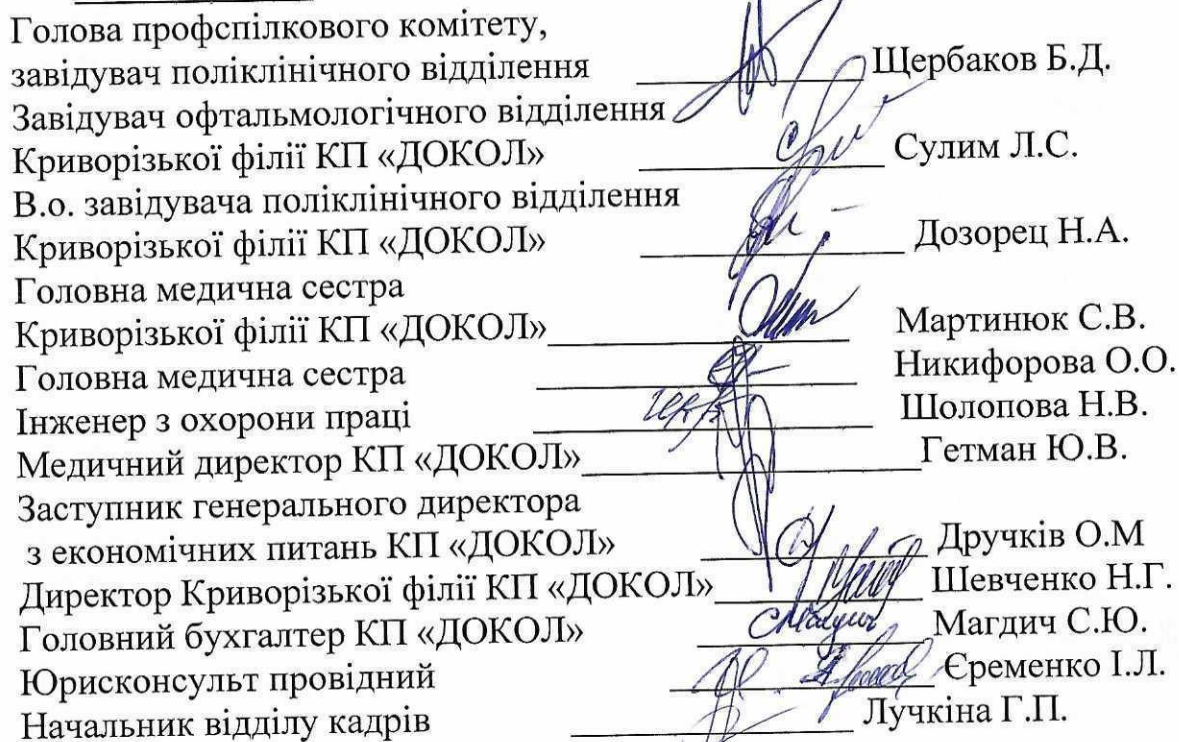 Голова профспілкового комітету,
завідувач поліклінічного відділення Щербаков Б.Д.
Завідувач офтальмологічного відділення
Криворізької філії КП «ДОКОЛ» Сулим Л.С.
В.о. завідувача поліклінічного відділення
Криворізької філії КП «ДОКОЛ» Дозорец Н.А.
Головна медична сестра
Криворізької філії КП «ДОКОЛ» Мартинюк С.В.
Головна медична сестра Никифорова О.О.
Інженер з охорони праці Шолопова Н.В.
Медичний директор КП «ДОКОЛ» Гетман Ю.В.
Заступник генерального директора
з економічних питань КП «ДОКОЛ» Дручків О.М
Директор Криворізької філії КП «ДОКОЛ» Шевченко Н.Г.
Головний бухгалтер КП «ДОКОЛ» Магдич С.Ю.
Юрисконсульт провідний Єременко І.Л.
Начальник відділу кадрів Лучкіна Г.П.